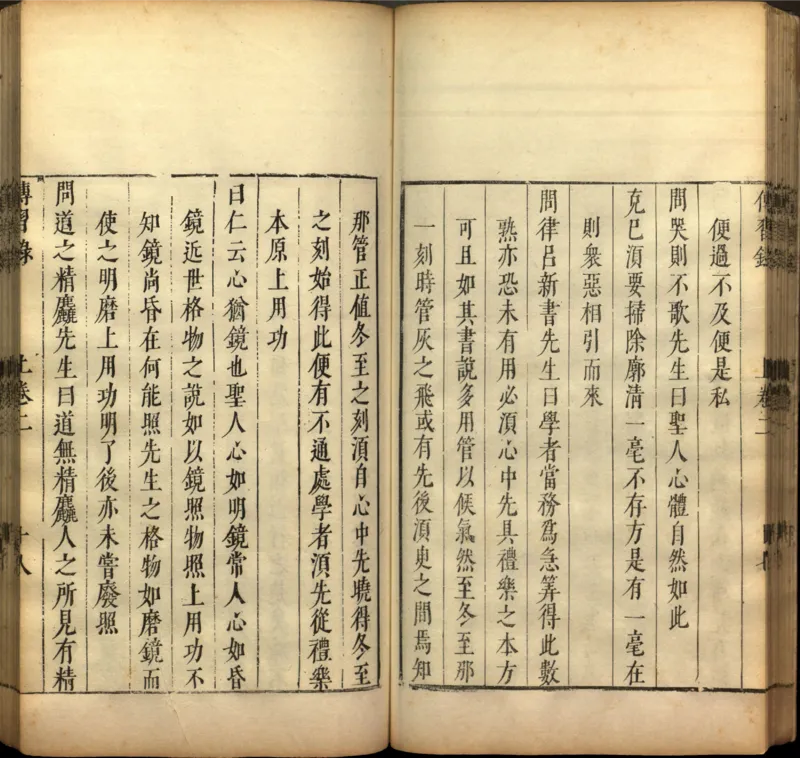 便過不及便是私
問哭則不歌先生曰聖人心體自然如此
克己須要掃除廓清一毫不存方是有一毫在
則衆惡相引而來
問律呂新書先生曰學者當務爲急筭得此數
熟亦恐未有用必須心中先具禮樂之本方
可且如其書說多用管以候氣然至冬至那
一刻時管灰之飛或有先後須臾之間焉知
那管正值冬至之刻須自心中先曉得冬至
之刻始得此便有不通處學者須先從禮樂
本原上用功
曰仁云心猶鏡也聖人心如明鏡常人心如昏
鏡近世格物之說如以鏡照物照上用功不
知鏡尚昏在何能照先生之格物如磨鏡而
使之明磨上用功明了後亦未嘗廢照
問道之精麤先生曰道無精麤人之所見有精
傳習錄
上卷二
十八